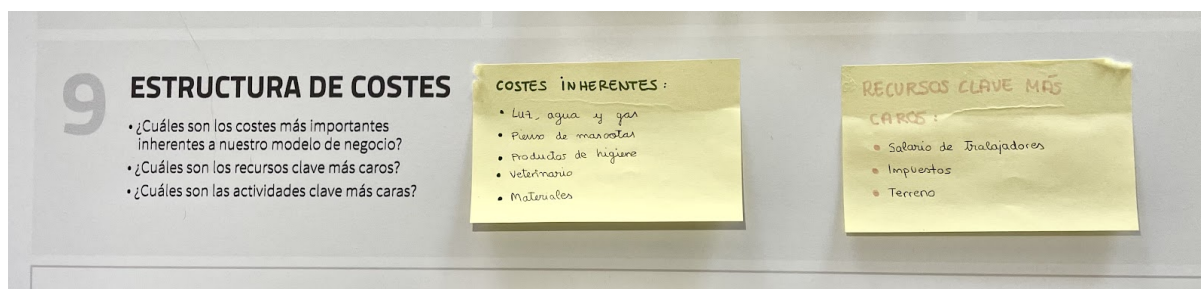 9
ESTRUCTURA DE COSTES
• ¿Cuáles son los costes más importantes
inherentes a nuestro modelo de negocio?
• ¿Cuáles son los recursos clave más caros?
• ¿Cuáles son las actividades clave más caras?
COSTES INHERENTES:
• Luz, agua y gas
• Pienso de mascotas
• Productos de higiene
• Veterinario
• Materiales
RECURSOS CLAVE MÁS
CAROS:
• Salario de Trabajadores
• Impuestos
• Terreno